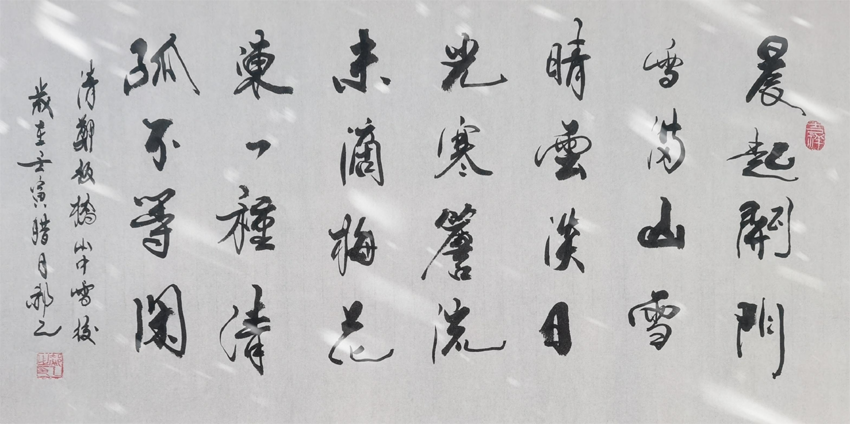 吉祥
晨起開門
雪满山雪
晴雲淡日
光寒簷流
未滴梅花
凍一種清
孤不等閑
清鄭板橋山中雪後
歲在壬寅腊月郝